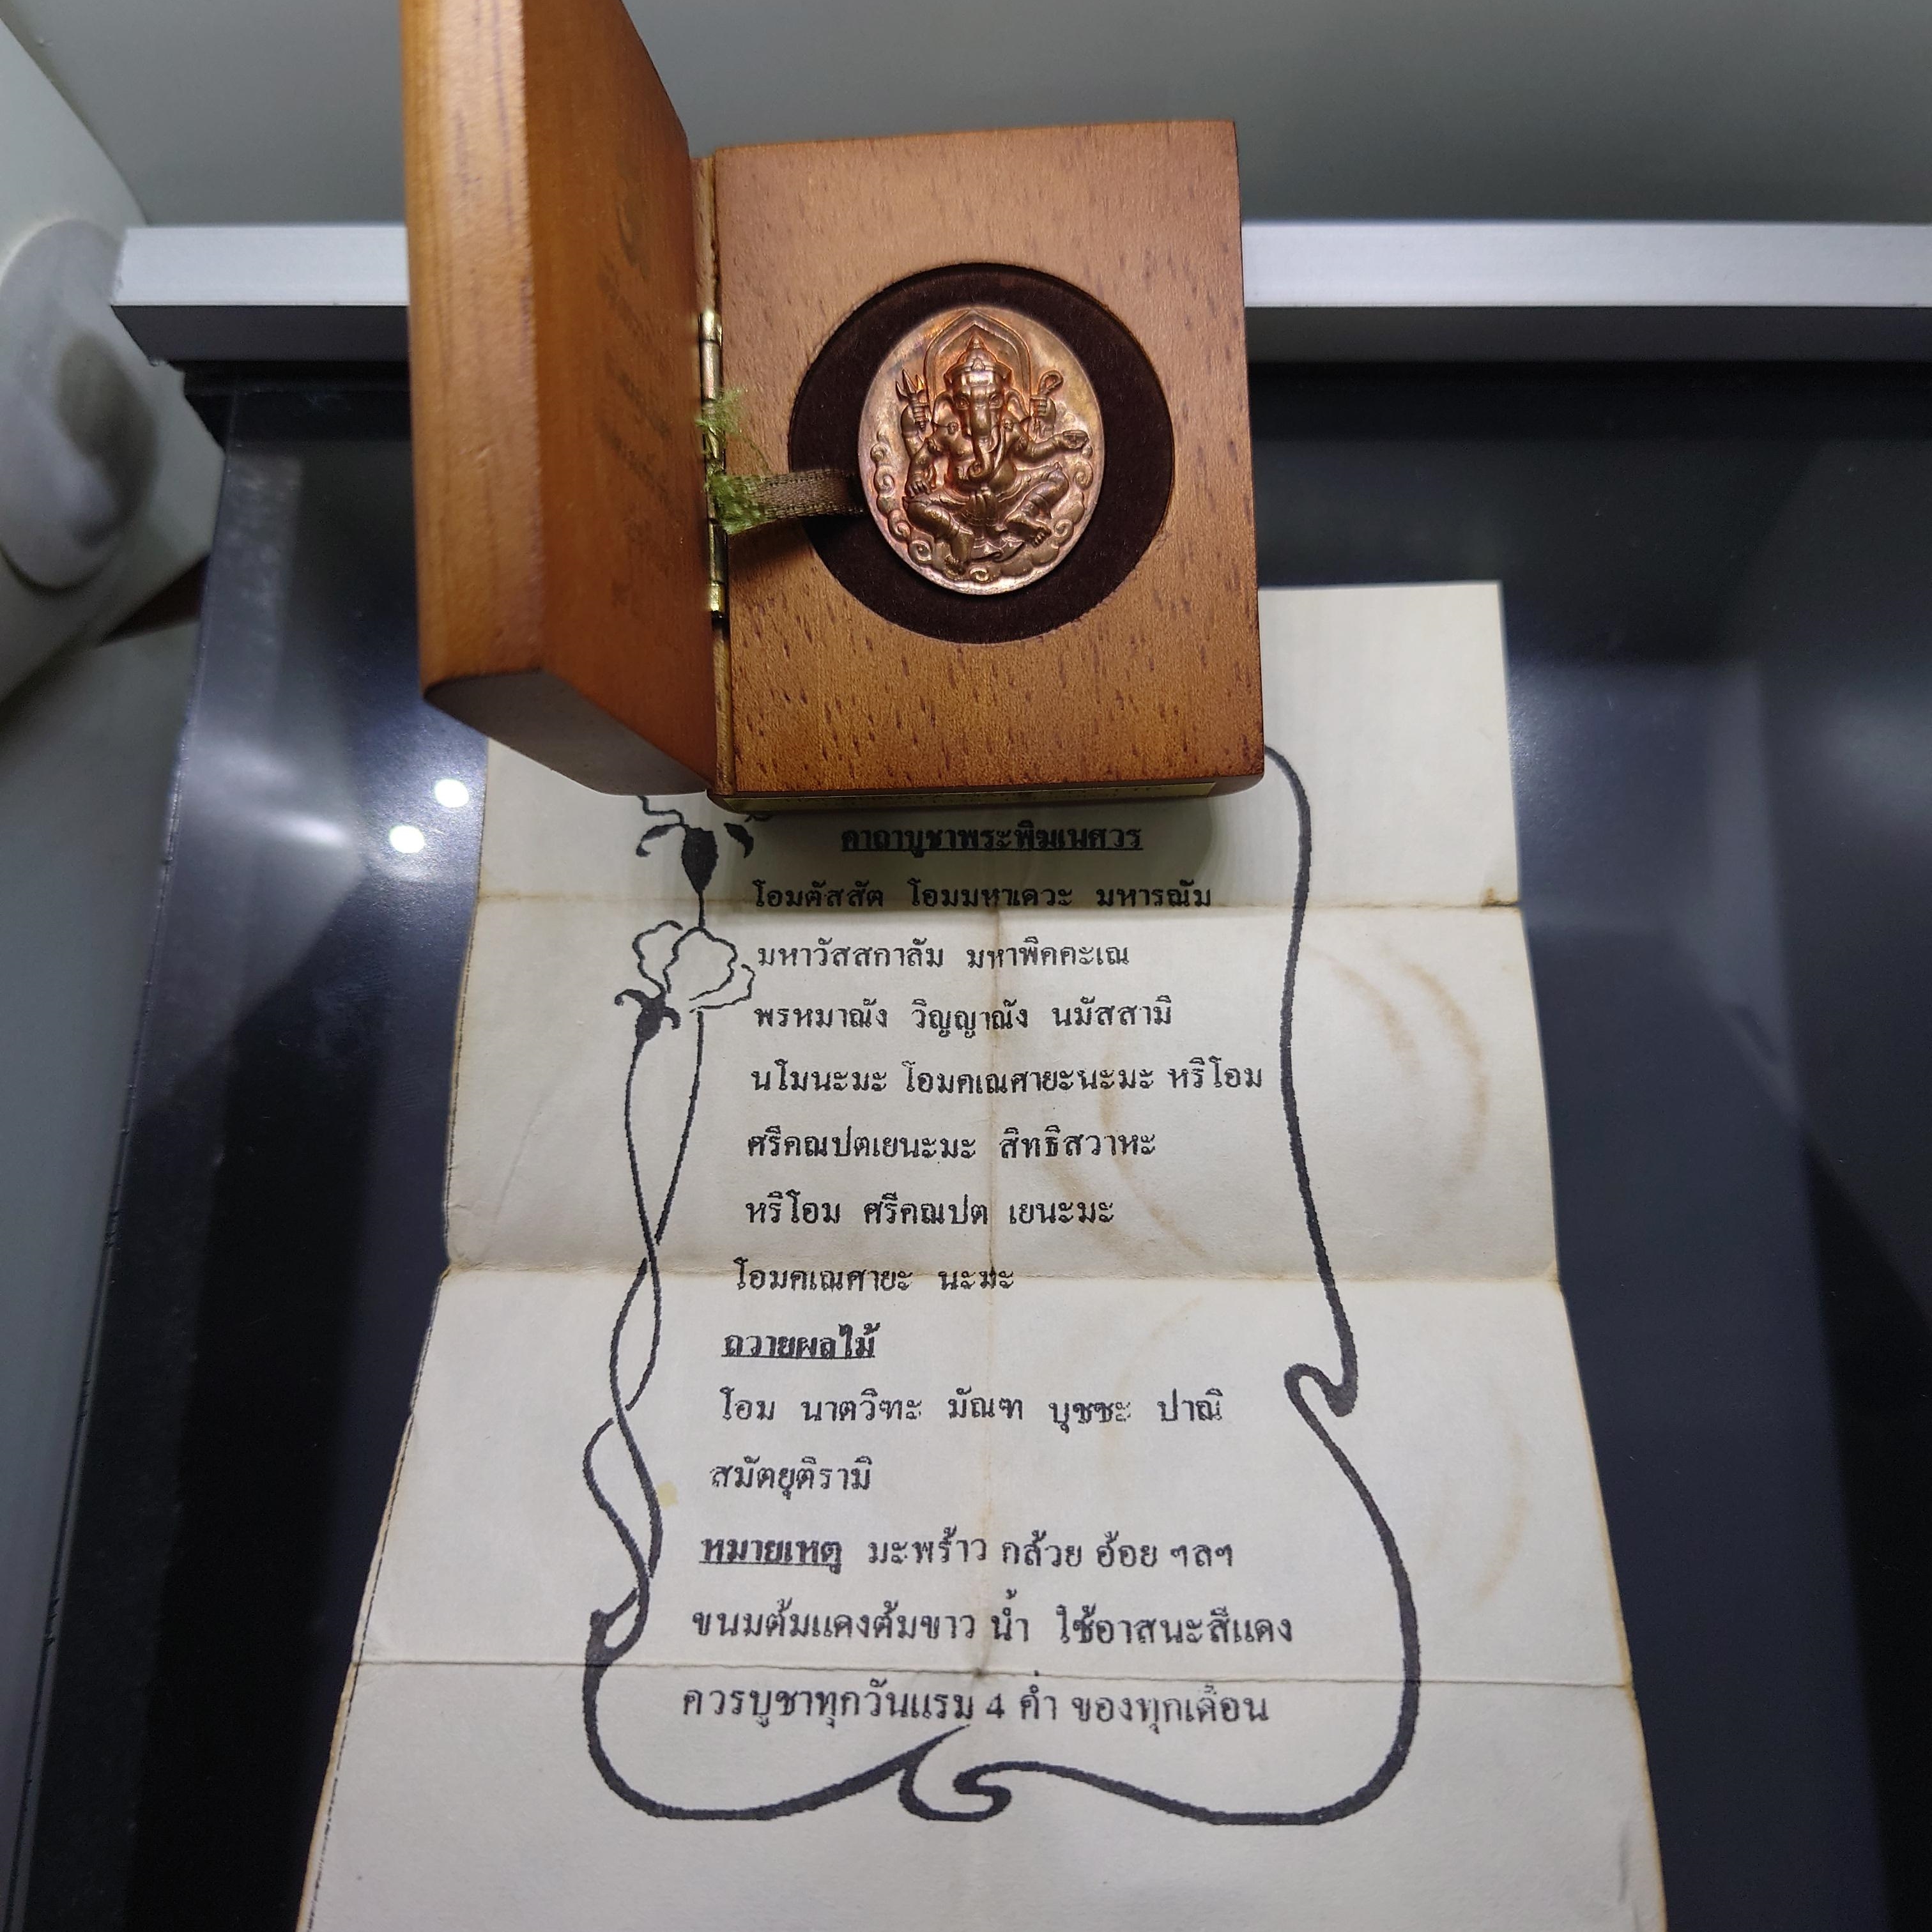 คาถาบูชาพระพิฆเนศวร
โอมตัสสัต โอมมหาเดวะ มหารณัม
มหาวัสสกาลัม มหาพิคคะเณ
พรหมาณัง วิญญาณัง นมัสสามิ
นโมนะมะ โอมคเณศายะนะมะ หริโอม
ศรีคณปตเยนะมะ สิทธิสวาหะ
หริโอม ศรีคณปต เยนะมะ
โอมคเณศายะ นะมะ
ถวายผลไม้
โอม นาตวิฑะ มัณฑ บุชชะ ปาณิ
สมัตยุติรามิ
หมายเหตุ มะพร้าว กล้วย อ้อย ฯลฯ
ขนมต้มแดงต้มขาว น้ำ ใช้อาสนะสีแดง
ควรบูชาทุกวันแรม 4 ค่ำ ของทุกเดือน